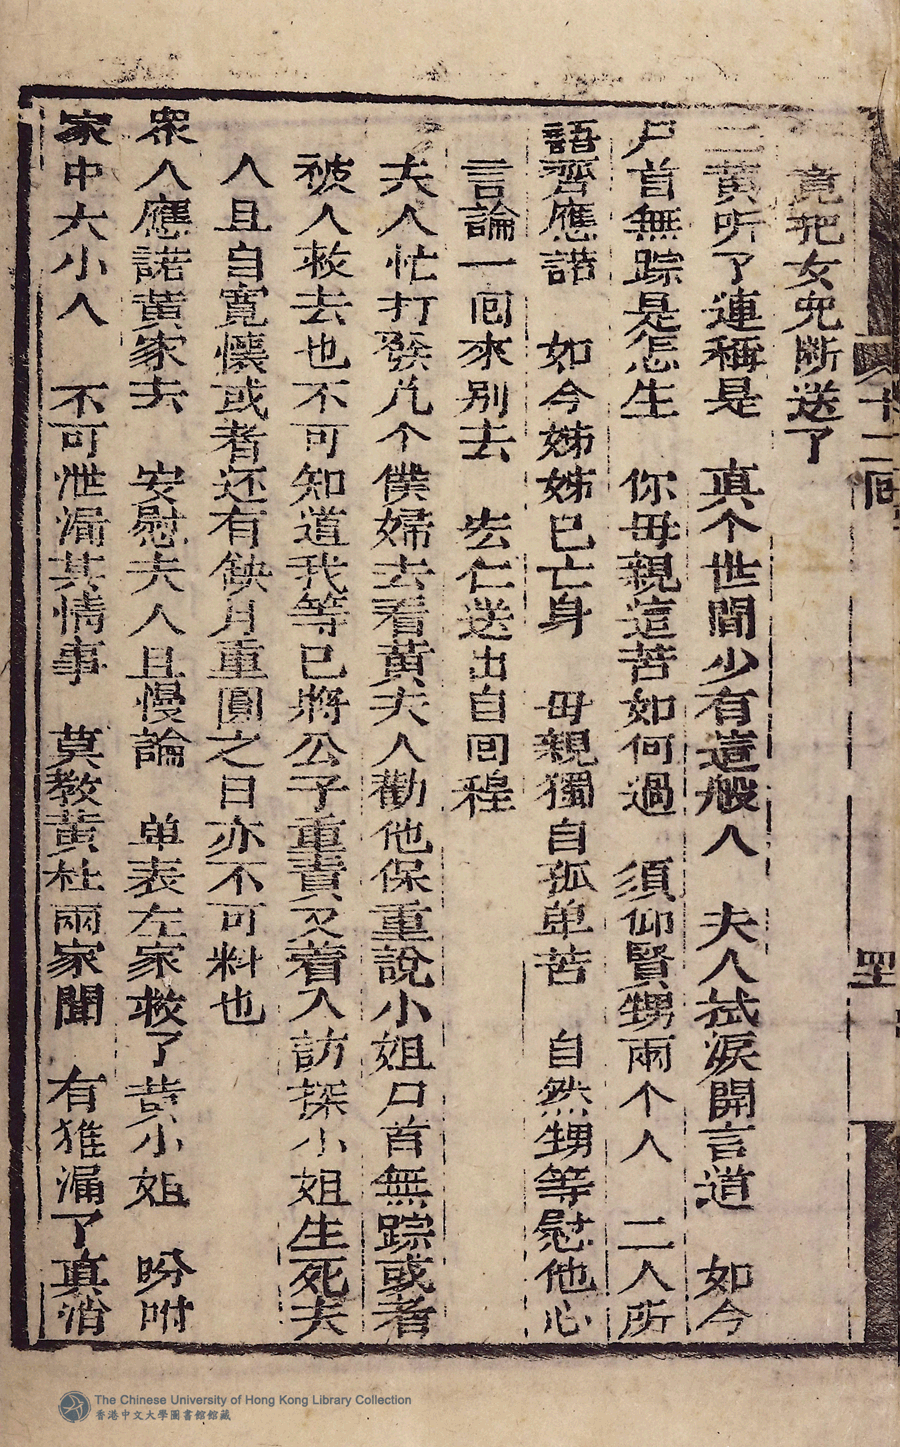 十二囘
四
竟把女兒斷送了
二黄听了連稱是　真个世間少有這般人　夫人拭淚開言道　如今
尸首無踪是怎生　你母親這苦如何過　須仰賢甥兩个人　二人所
語齊應諾　如今姊姊已亡身　母親獨自孤单苦　自然甥等慰他心
言論一囘來別去　宏仁送出自囘程
夫人忙打發几个僕婦去看黄夫人勸他保重說小姐尸首無踪或者
被人救去也不可知道我等已將公子重責又着人訪探小姐生死夫
人且自寛懷或者还有缺月重圓之日亦不可料也
衆人應諾黄家去　安慰夫人且慢論　单表左家救了黄小姐　吩咐
家中大小人　不可泄漏其情事　莫教黄杜兩家聞　有誰漏了真消
The Chinese University of Hong Kong Library Collection
香港中文大學圖書館館藏